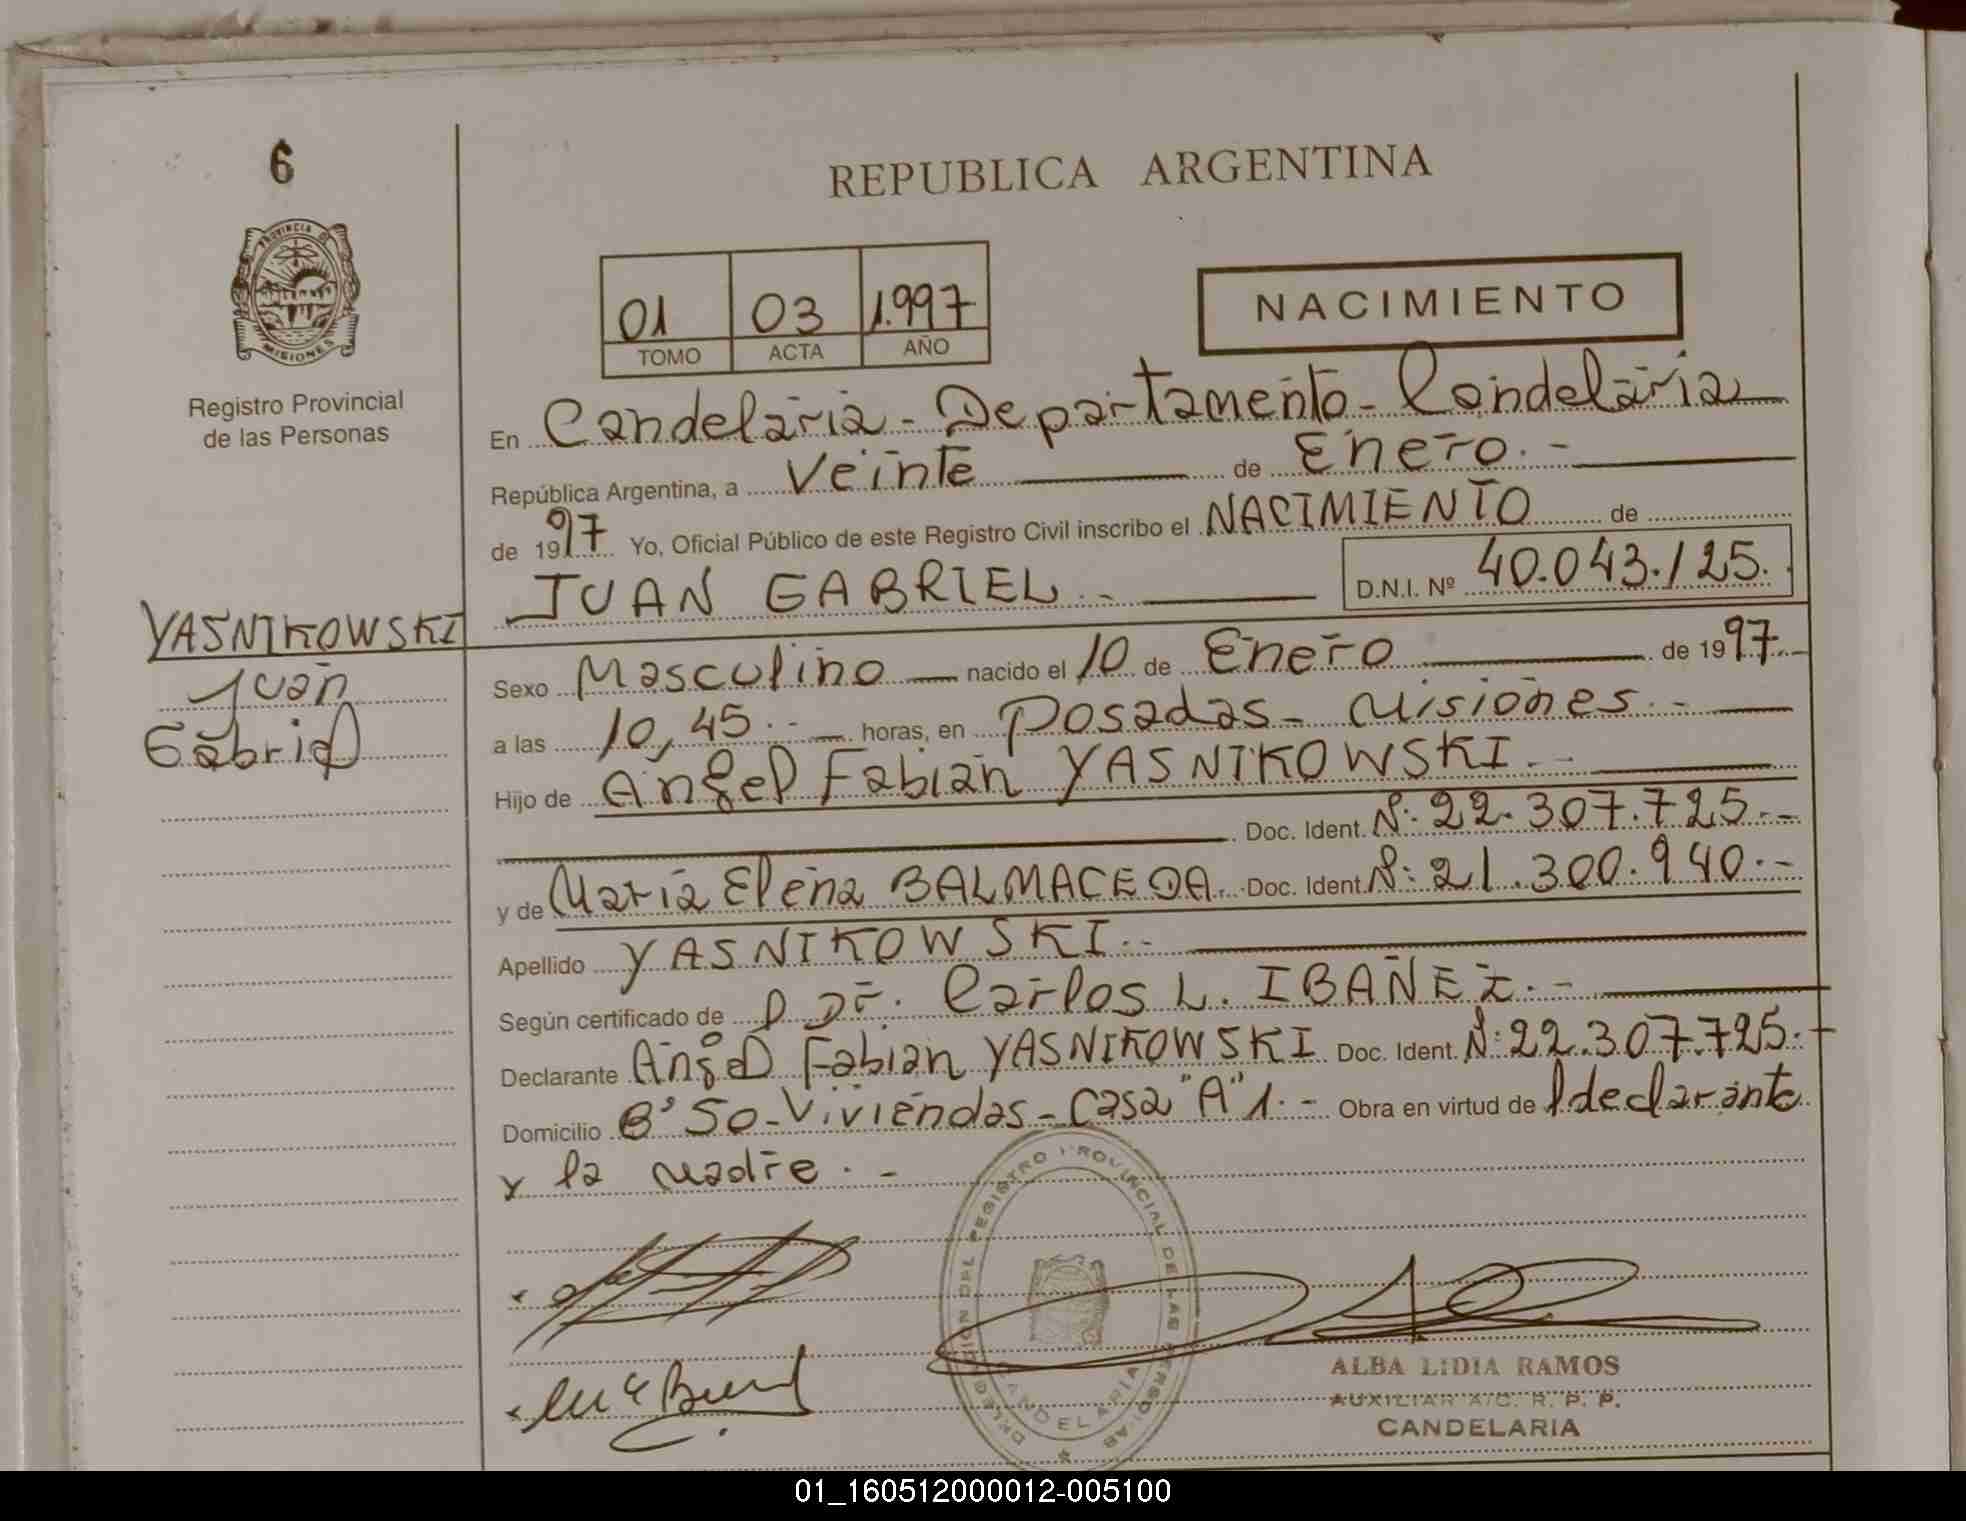 6
REPUBLICA ARGENTINA
PROVINCIA DE
MISIONES
01 03 1.997
TOMO ACTA AÑO
NACIMIENTO
Registro Provincial
de las Personas
En Candelaria - Departamento - Candelaria
República Argentina, a Veinte de Enero.-
de 1997 Yo, Oficial Público de este Registro Civil inscribo el NACIMIENTO de
JUAN GABRIEL.- D.N.I. Nº 40.043.125.
YASNIKOWSKI
Juan
Gabriel
Sexo Masculino nacido el 10 de Enero de 1997.-
a las 10,45.- horas, en Posadas - Misiones.-
Hijo de Angel Fabian YASNIKOWSKI.-
Doc. Ident. Nº: 22.307.725.-
y de Maria Elena BALMACEDA.- Doc. Ident. Nº: 21.300.940.-
Apellido YASNIKOWSKI.-
Según certificado de Dr. Carlos L. IBAÑEZ.-
Declarante Angel Fabian YASNIKOWSKI Doc. Ident. Nº: 22.307.725.-
Domicilio Bº 50-Viviendas - Casa "A" 1.- Obra en virtud de l declarante
y la madre.-
DELEGACION DEL REGISTRO PROVINCIAL DE LAS PERSONAS
CANDELARIA
ALBA LIDIA RAMOS
AUXILIAR A/C. R. P. P.
CANDELARIA
01_160512000012-005100